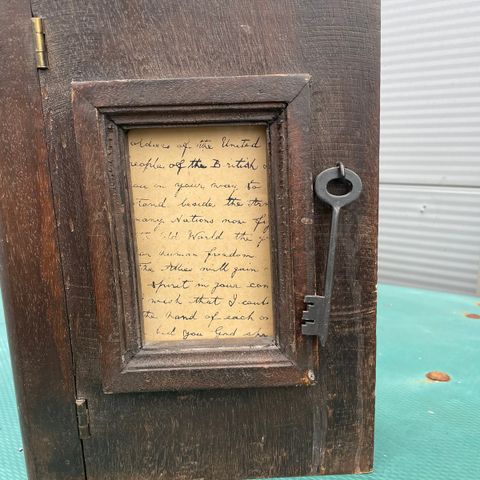 oldiers of the United
eople of the British
on your way to
tand beside the
many Nations now
ld World the
human freedom
The Allies will gain
spirit in your com
wish that I could
the hand of each
bid you God spe